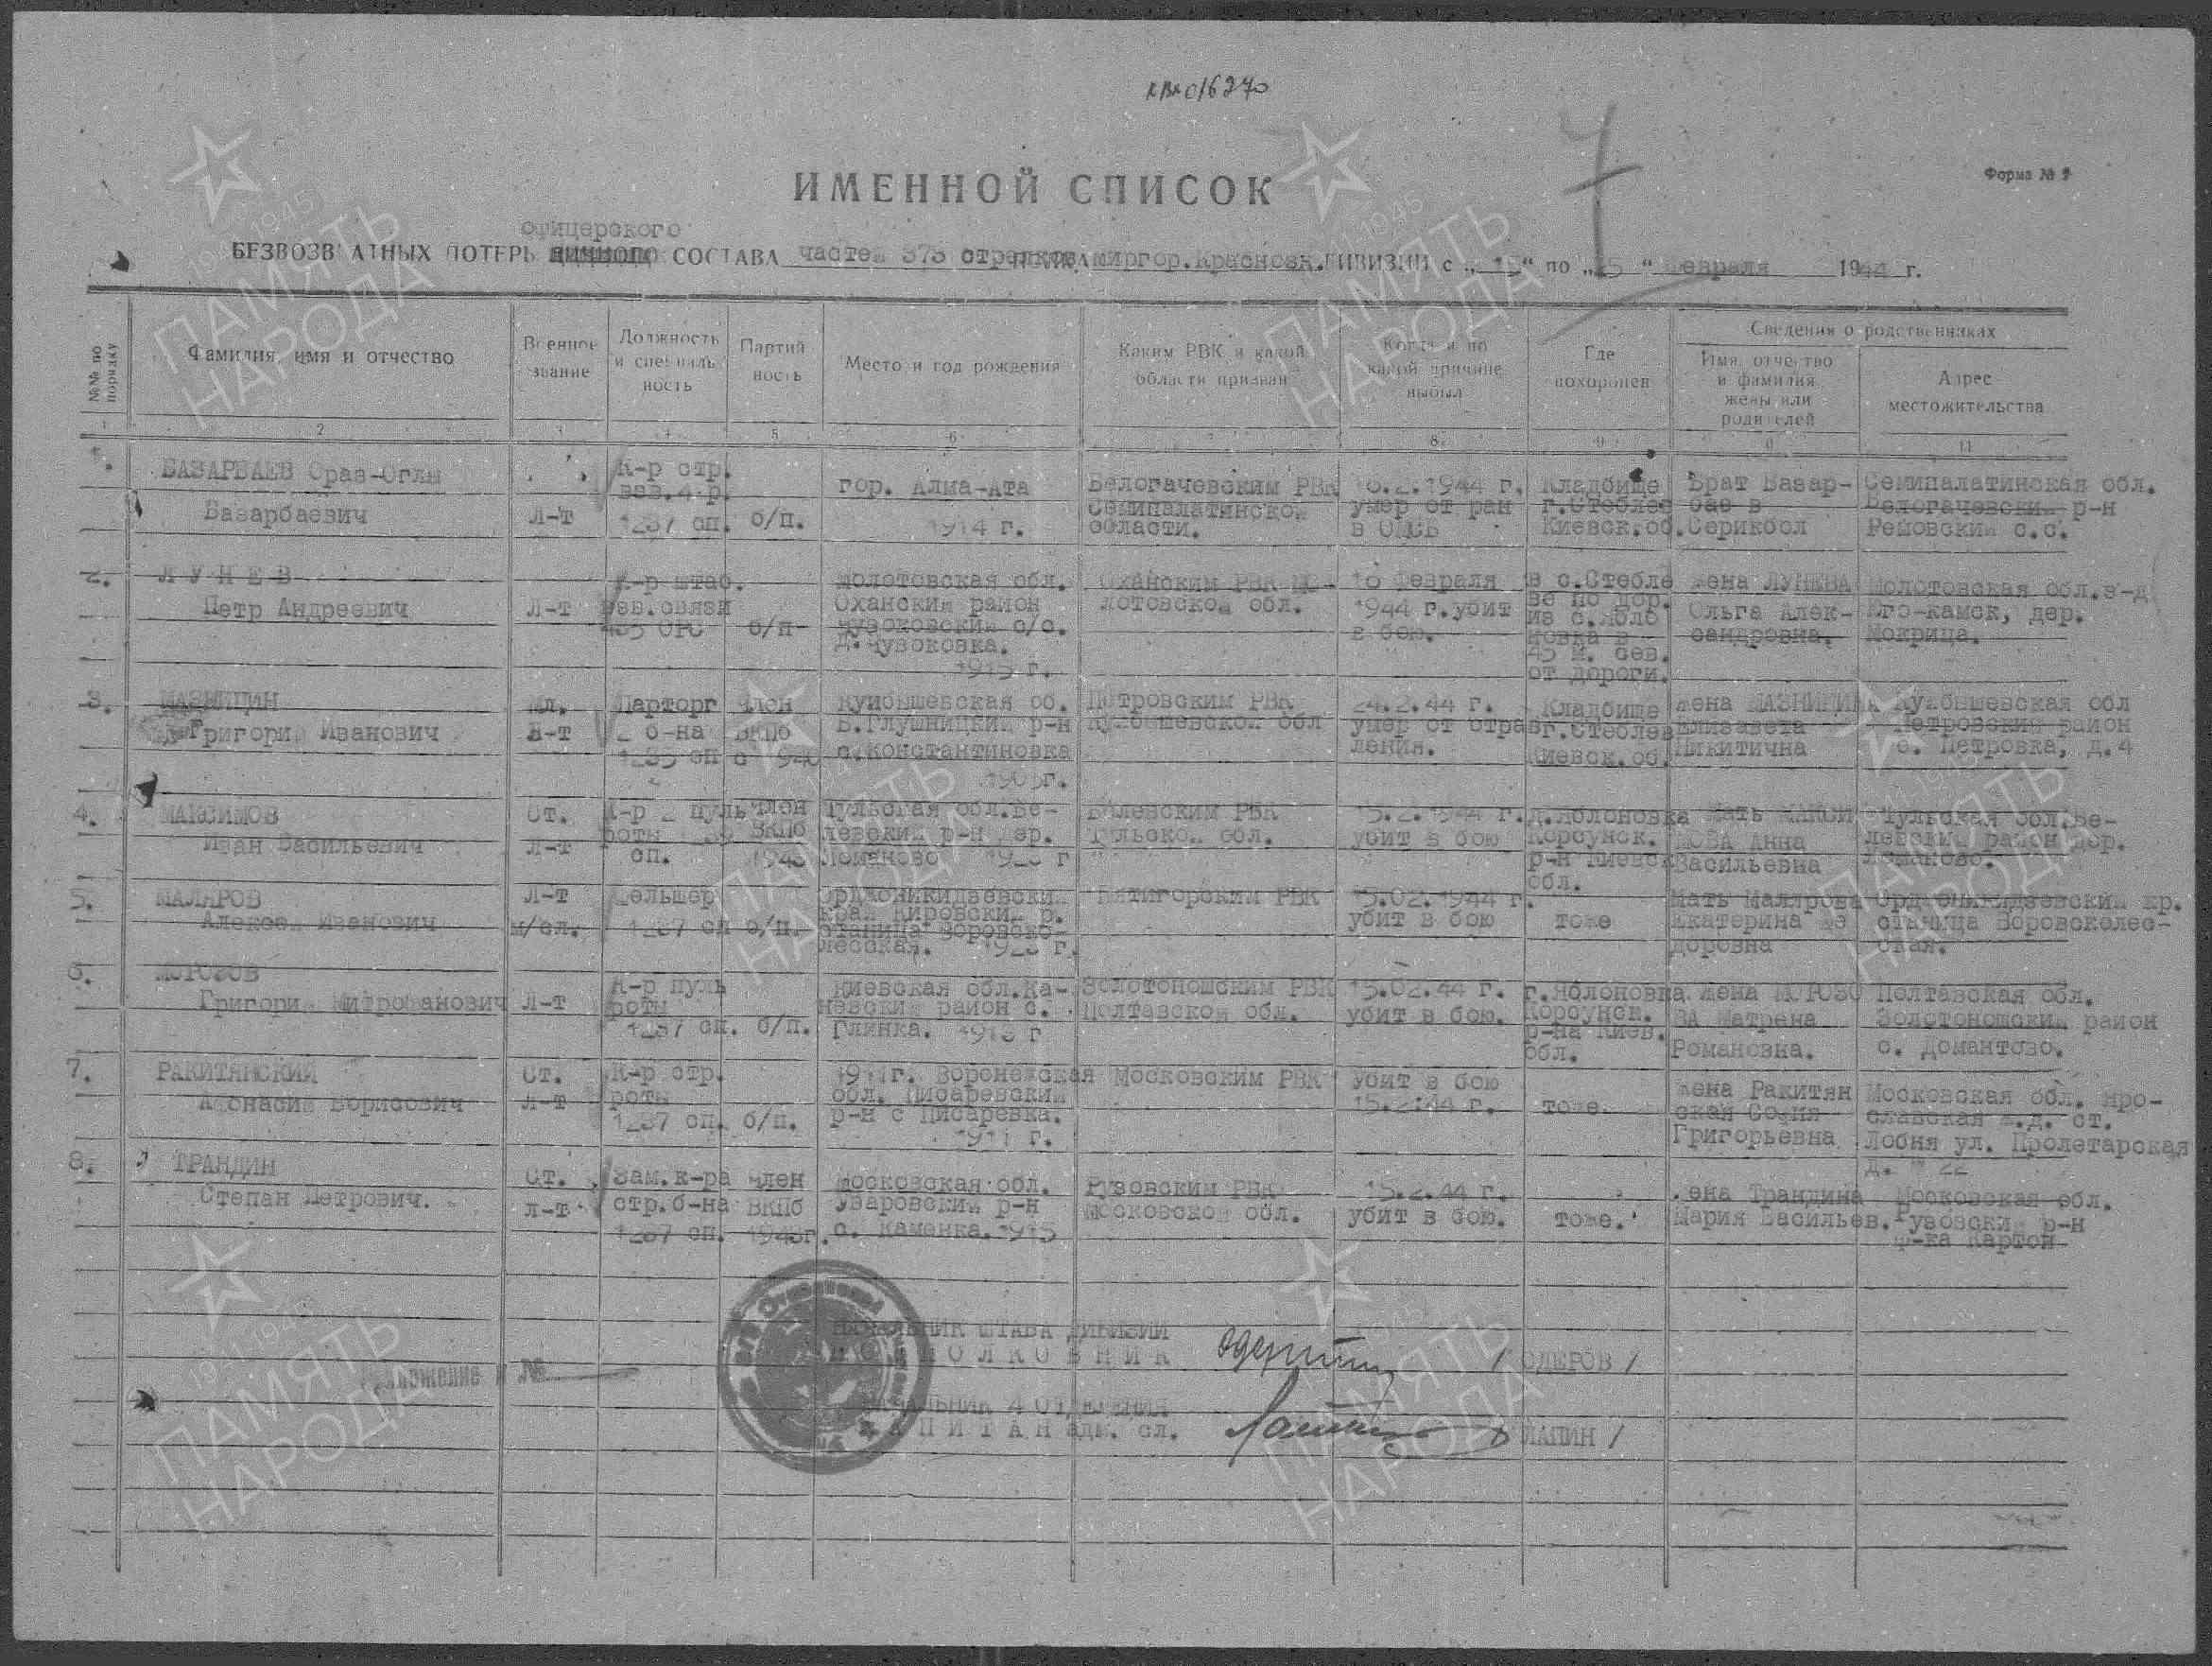 016270
ИМЕННОЙ СПИСОК
Форма №
офицерского
БЕЗВОЗВРАТНЫХ ПОТЕРЬ личного СОСТАВА частей 373 стрелков. миргор. Краснозн. ДИВИЗИИ с „15“ по „25“ февраля 1944 г.
№№ по порядку
Фамилия, имя и отчество
Военное звание
Должность и специальность
Партийность
Место и год рождения
Каким РВК и какой области призван
Когда и по какой причине выбыл
Где похоронен
Сведения о родственниках
Имя, отчество и фамилия жены или родителей
Адрес местожительства
1 2 3 4 5 6 7 8 9 11
1. БАЗАРБАЕВ Ораз-Оглы К-р стр. гор. Алма-Ата Белогачевским РВК 16.2.1944 г. Кладбище Брат Базар- Семипалатинская обл.
взв. 4 р. Семипалатинской умер от ран г.Стеблев баев Белогачевский р-н
Базарбаевич Л-т 1237 сп. б/п. 1914 г. области. в ОМСБ Киевск.об. Серикбол Решовский с.с.
2. ЛУНЕВ К-р штаб. Молотовская обл. Оханским РВК Мо- 16 февраля в с.Стебле Жена ЛУНЕВА Молотовская обл. з-д
Петр Андреевич Л-т взв.связи Оханский район лотовской обл. 1944 г.убит ве по дор. Ольга Алек- Юго-камск, дер.
ОРС б/п Чузоковский с/с. в бою. из с.Ябло новка в сандровна. Мокрица.
д.Чузоковка. 45 м. сев.
1915 г. от дороги.
3. МАЗНИЦИН Мл. Парторг член Куйбышевская об. Петровским РВК 24.2.44 г. Кладбище Жена Куйбышевская обл
Григорий Иванович Л-т 2 б-на ВКПб Б.Глушницкий р-н Куйбышевской обл умер от отрав г.Стеблев Елизавета Петровский район
1235 сп с 1940 с.Константиновка ления. Киевск.об. Никитична с. Петровка, д.4
г.
4. МАКСИМОВ Ст. К-р 2 пуль член Тульская обл.Бе- Белевским РВК 15.2.1944 г. д.Яблоновка Мать МАКСИ Тульская обл.Бе-
роты ВКПб левский р-н дер. Тульской обл. убит в бою Корсунск. МОВА Анна левский район дер.
Иван Васильевич Л-т сп. 1943 Ломаново г р-н Киевск обл. Васильевна Ломаново.
5. МАЛЯРОВ Л-т Фельшер Орджоникидзевский Пятигорским РВК 15.02.1944 г. Мать Малярова Орджоникидзевский кр.
Алексей Иванович м/сл. 1237 сп б/п. край Кировский р. убит в бою тоже Екатерина Фе станица Воровсколес-
станица Воровско- доровна ская.
лесская. г.
6. МОРОЗОВ К-р пуль Киевская обл.Ка- Золотоношским РВК 15.02.44 г. г.Яблоновка Жена МОРОЗО Полтавская обл.
Григорий Митрофанович Л-т роты невский район с. Полтавской обл. убит в бою. Корсунск. ВА Матрена Золотоношский район
1237 сп. б/п. Глинка. 1913 г р-на Киев. обл. Романовна. с. Домантово.
7. РАКИТЯНСКИЙ Ст. К-р стр. 1911г. Воронежская Московским РВК убит в бою Жена Ракитян Московская обл. Яро-
Афонасий Борисович Л-т роты обл. Писаревский 15.2.44 г. тоже ская София славская ж.д. ст.
1237 сп. б/п. р-н с Писаревка. Григорьевна Лобня ул. Пролетарская
1911 г. д. № 22
8. ТРАНДИН Ст. Зам.к-ра член Московская обл. Рузовским РВК 15.2.44 г. Жена Трандина Московская обл.
Степан Петрович. Л-т стр.б-на ВКПб Уваровский р-н Московской обл. убит в бою. тоже. Мария Васильев. Рузовский р-н
1237 сп. 1943г. с. Каменка. 1915 ф-ка Картон
НАЧАЛЬНИК ШТАБА ДИВИЗИИ
ПОДПОЛКОВНИК / ОДЕРОВ /
НАЧАЛЬНИК 4 ОТДЕЛЕНИЯ
КАПИТАН адм. сл. / ЛАПИН /
1941-1945
ПАМЯТЬ
НАРОДА